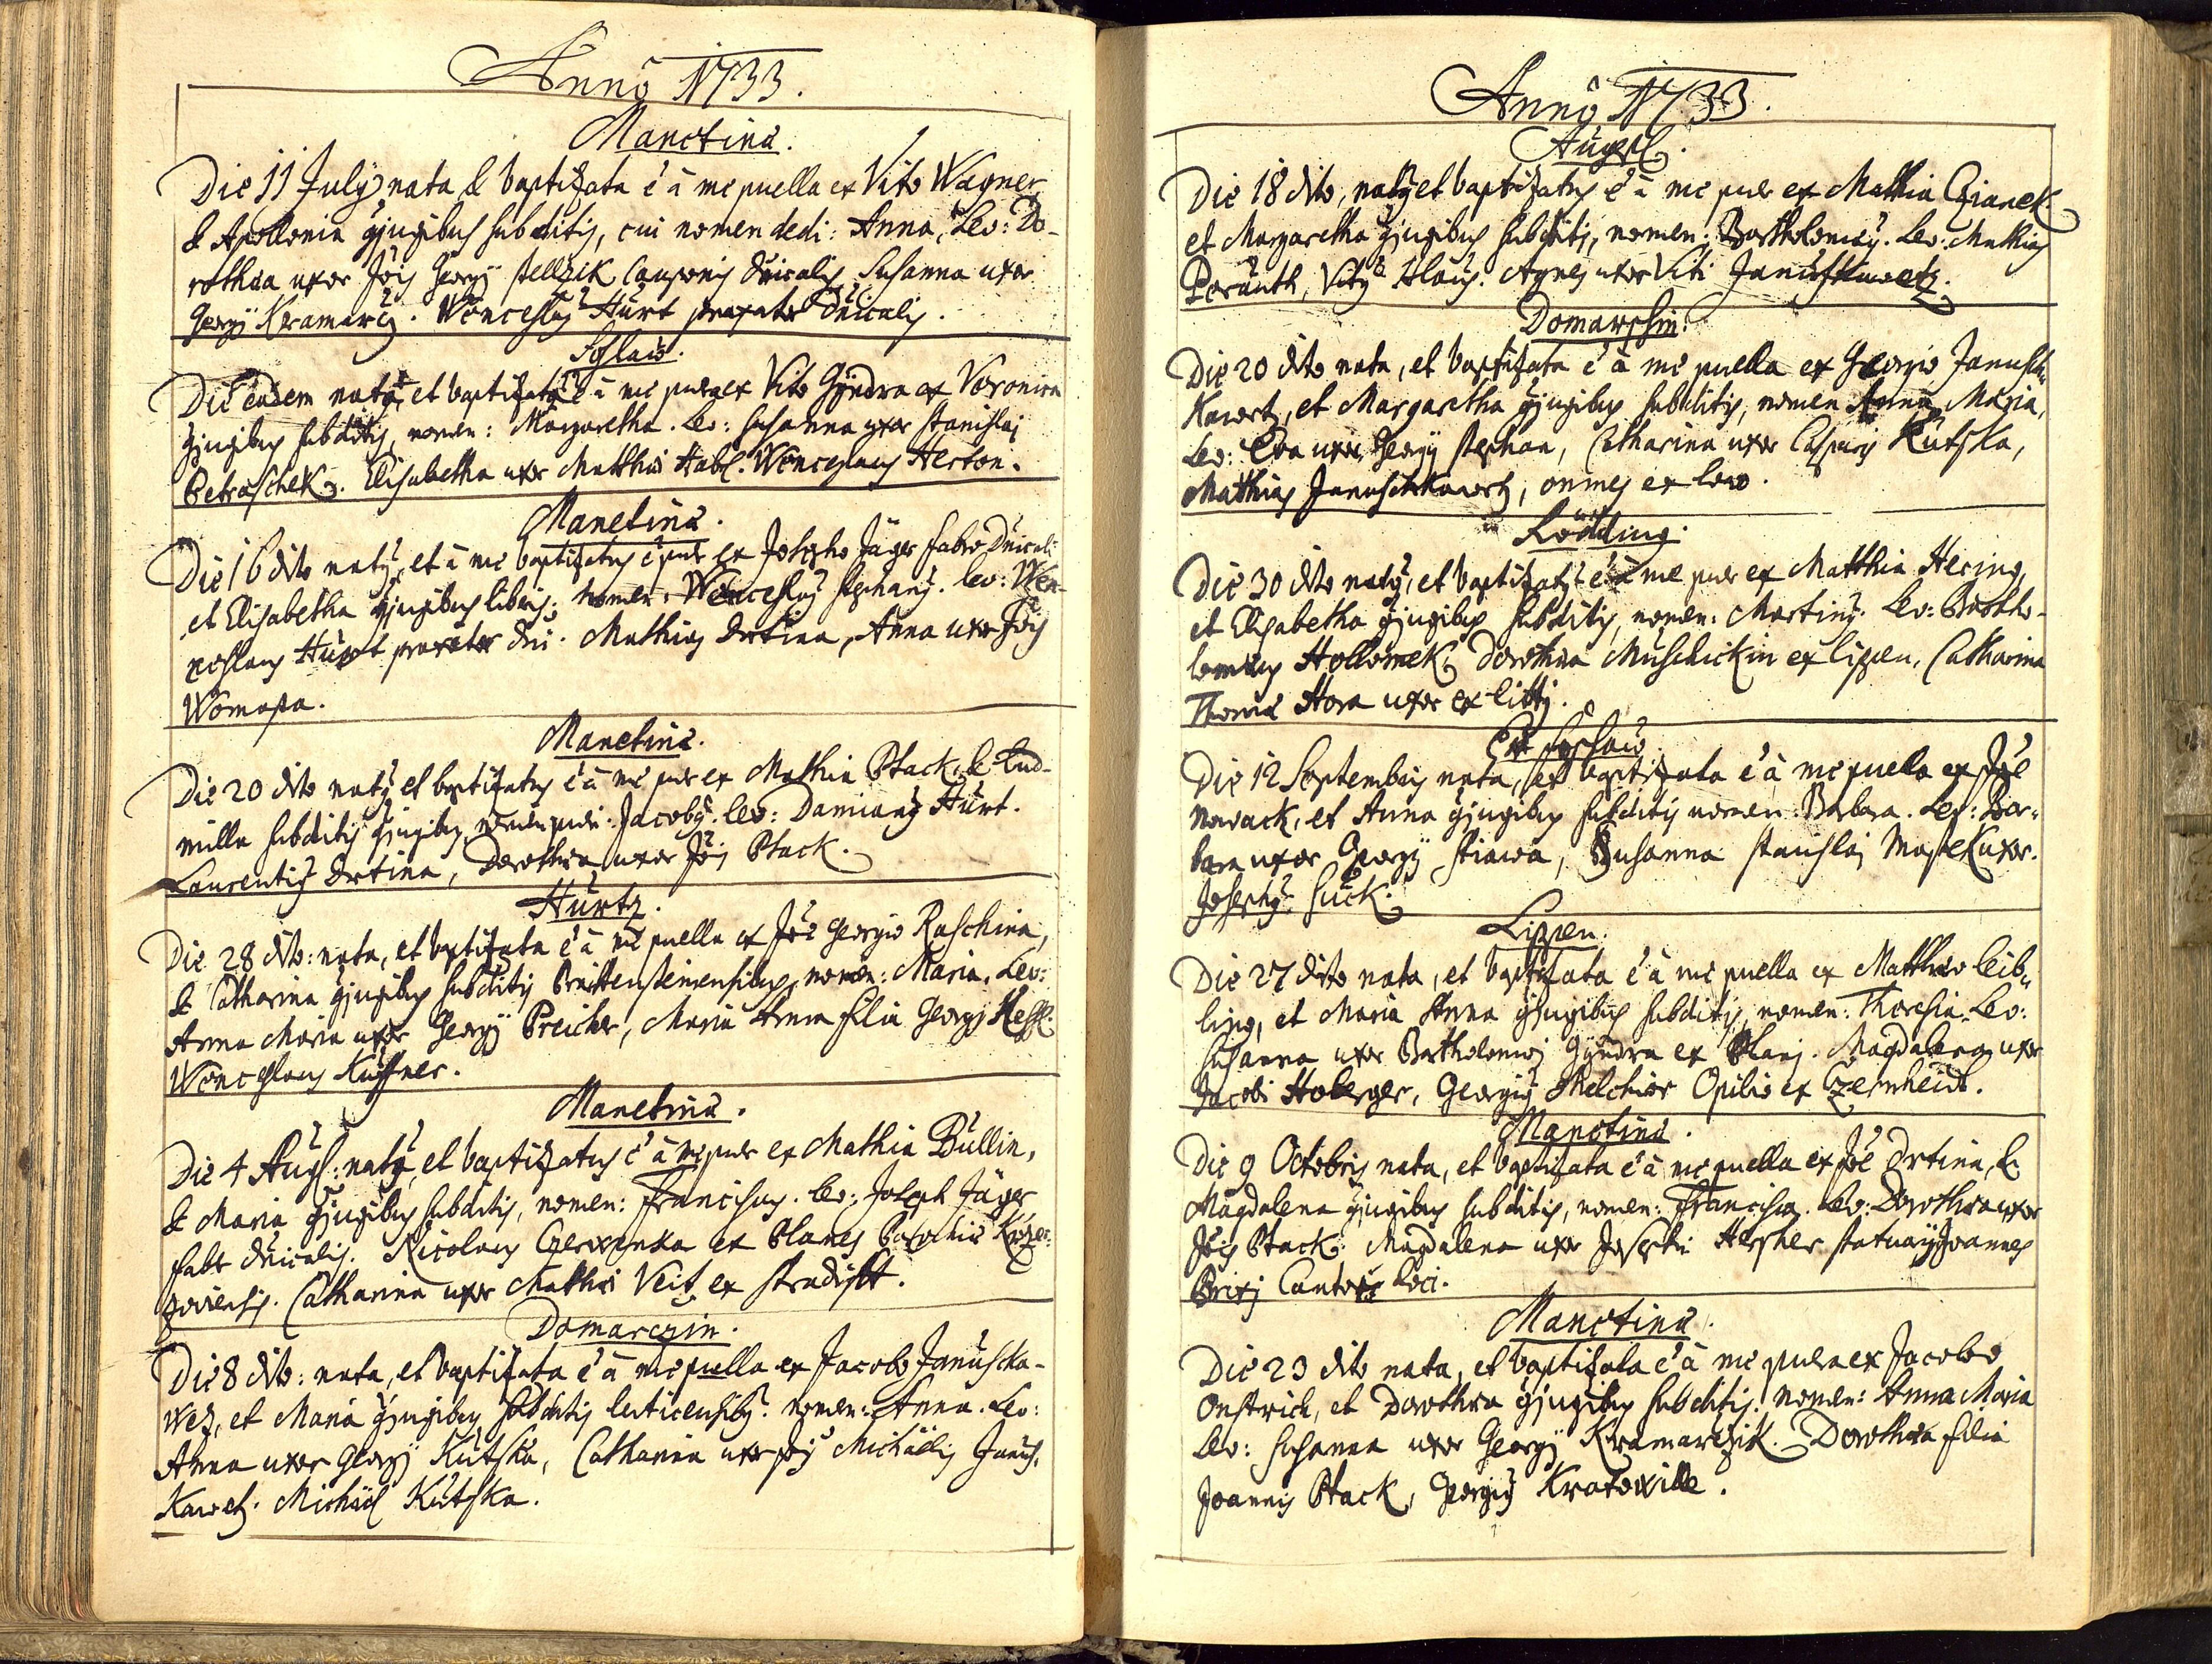 Anno 1733.
Manetinæ.
Die 11 July nata & baptizata e à me puella ex Vito Wagner
& Apollonia gjugibus subditis, cui nomen dedi: Anna, Lev: Do-
rothea uxor Jois Georgÿ Duicalis Susanna uxor
Georgÿ Kramarz. Wenceslaus Hurt Duicalis.
Die eadem et baptizata e à me ex Vito Gyndra et Veronica
gjugibus subditis, nomen: Margaretha. Lev: Susanna uxor Stanislai
Petraschek. Elisabetha uxor Matthiæ Habl. Wenceslaus Herton.
Manetinæ.
Die 16 dito natus, et à me baptizatus e puer ex Josepho Jäger fabro Duicali
et Elisabetha gjugibus liberis, nomen: Wenceslaus Stephanus. Lev: Wen-
ceslaus Hurt Dni. Mathias Drtina, Anna uxor Jois
Womasta.
Manetinæ.
Die 20 dito natus et baptizatus e à me puer ex Mathia Ptack, & Lud-
milla subditis gjugibus, nomen: Jacobus. Lev: Damianus Hurt.
Laurentius Drtina, Dorothea uxor Jois Ptack.
Hurtz.
Die 28 dito: nata, et baptizata e à me puella ex Joe Georgio Raschina,
& Catharina gjugibus subditis nomen: Maria. Lev:
Anna Maria uxor Georgÿ Preicher, Maria Anna filia Georgÿ
Wenceslaus
Manetinæ.
Die 4 Aug: natus, et baptizatus e à me puer ex Mathia Bullin,
& Maria gjugibus subditis, nomen: Franciscus. Lev: Joseph Jäger
faber Duicalis. Nicolaus ex Planes Parochiæ
Catharina uxor Mathiæ Veit ex Stradisst.
Domarczin.
Die 8 dito: nata, et baptizata e à me puella ex Jacobo Januschka-
wez, et Maria gjugibus subditis. nomen: Anna. Lev:
Anna uxor Georgÿ Kutska, Catharina uxor Jois Michaelis Janusch-
kawetz. Michäel Kutska.
Anno 1733.
Die 18 dito, natus et baptizatus e à me puer ex Mathia Czianek
et Margaretha gjugibus subditis, nomen: Bartholomeus. Lev: Mathias
Poranth, Vitus Klaus. Agnes uxor Viti Januschkawetz.
Domarschin.
Die 20 dito nata, et baptizata e à me puella ex Georgio Janusch-
kawetz, et Margaretha gjugibus subditis, nomen Anna Maria,
Lev: Eva uxor Georgÿ Stephan, Catharina uxor Casparis Kutska,
Mathias Januschkawetz, omnes ex loco.
Lödding.
Die 30 dito natus, et baptizatus e à me puer ex Matthia Hering,
et Elisabetha gjugibus subditis, nomen: Martinus. Lev: Bartho-
lomeus Hollomek, Dorothea Muschickin ex Lippen, Catharina
Thomæ Hora uxor ex Littj.
Die 12 Septembris nata, et baptizata e à me puella ex Joe
Nowack, et Anna gjugibus subditis nomen Barbara. Lev: Bar-
bara uxor Georgÿ Stiawa, Susanna Stanislaj Maschek uxor.
Josephus Suck.
Lippen.
Die 27 dito nata, et baptizata e à me puella ex Matthæo Leib-
ling, et Maria Anna gjugibus subditis, nomen: Theresia. Lev:
Susanna uxor Bartholomei Gyndra ex Planj. Magdalena uxor
Jacobi Holerger, Georgius Melchior Opilio ex Czernheid.
Manetinæ.
Die 9 Octobris nata, et baptizata e à me puella ex Joe Drtina, &
Magdalena gjugibus subditis, nomen: Francisca. Lev: Dorothea uxor
Jois Ptack. Magdalena uxor Josephi Herscher statuarÿ Joannes
Brixj Cantor Loci.
Manetinæ.
Die 23 dito nata, et baptizata e à me ex Jacobo
Oestrich, et Dorothea gjugibus subditis. nomen: Anna Maria
Lev: Susanna uxor Georgÿ Kramarzik. Dorothea filia
Joannis Ptack, Georgius Kratoxille.